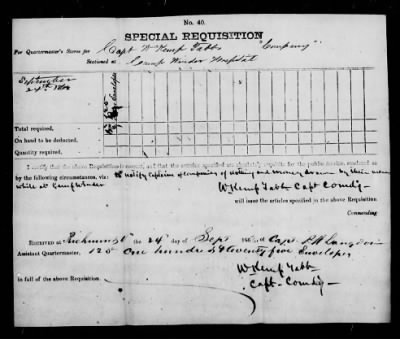 No. 40.
SPECIAL REQUISITION
For Quartermaster's Stores for Capt W Kemp Tabb "Company"
Stationed at Camp Winder Hospital
September
24th
Envelopes
Total required,
On hand to be deducted,
Quantity required,
I certify that the above Requisition is correct, and that the articles specified are absolutely requisite for the public service, rendered so
by the following circumstances, viz: to notify Captains of companies of clothing and money drawn by their men
while at Camp Winder
W Kemp Tabb Capt Comdg
will issue the articles specified in the above Requisition.
Commanding
Received at Richmond the 24th day of Sept 186 of Capt
Assistant Quartermaster, 125 One hundred & twenty five Envelopes
in full of the above Requisition.
W Kemp Tabb
Capt Comdg